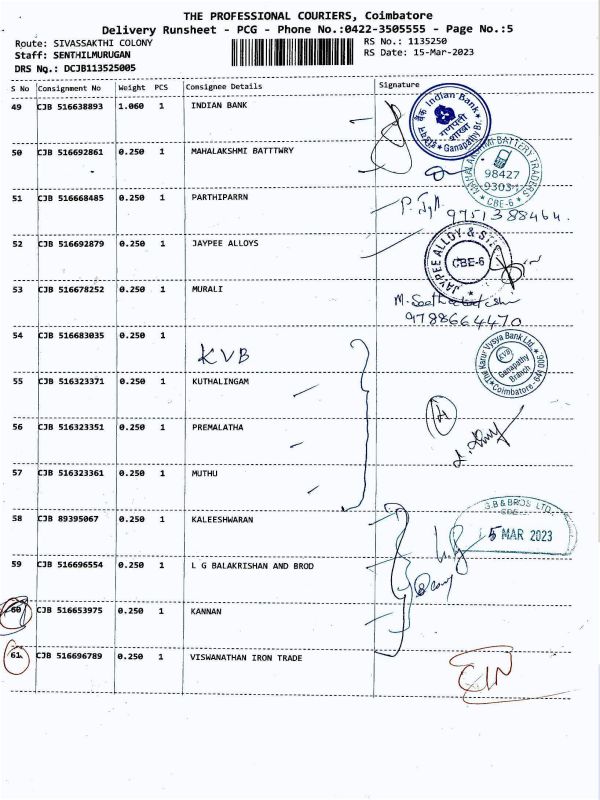 THE PROFESSIONAL COURIERS, Coimbatore
Delivery Runsheet - PCG - Phone No.:0422-3505555 - Page No.:5
Route: SIVASSAKTHI COLONY
RS No.: 1135250
Staff: SENTHILMURUGAN
RS Date: 15-Mar-2023
DRS No.: DCJB113525005
S No Consignment No Weight PCS Consignee Details Signature
49 CJB 516638893 1.060 1 INDIAN BANK
Indian Bank
गणपती
शाखा
Ganapathy Br.
50 CJB 516692861 0.250 1 MAHALAKSHMI BATTTWRY
MAHALAKSHMI BATTERY TRADERS
98427
CBE-6
51 CJB 516668485 0.250 1 PARTHIPARRN
9751388464.
52 CJB 516692879 0.250 1 JAYPEE ALLOYS
JAYPEE ALLOY & 
CBE-6
53 CJB 516678252 0.250 1 MURALI
9788664470
54 CJB 516683035 0.250 1
KVB
The Karur Vysya Bank Ltd.
KVB
Ganapathy
Branch
Coimbatore-641 006
55 CJB 516323371 0.250 1 KUTHALINGAM
56 CJB 516323351 0.250 1 PREMALATHA
57 CJB 516323361 0.250 1 MUTHU
58 CJB 89395067 0.250 1 KALEESHWARAN
G.B & BROS LTD.
15 MAR 2023
59 CJB 516696554 0.250 1 L G BALAKRISHAN AND BROD
60 CJB 516653975 0.250 1 KANNAN
61 CJB 516696789 0.250 1 VISWANATHAN IRON TRADE